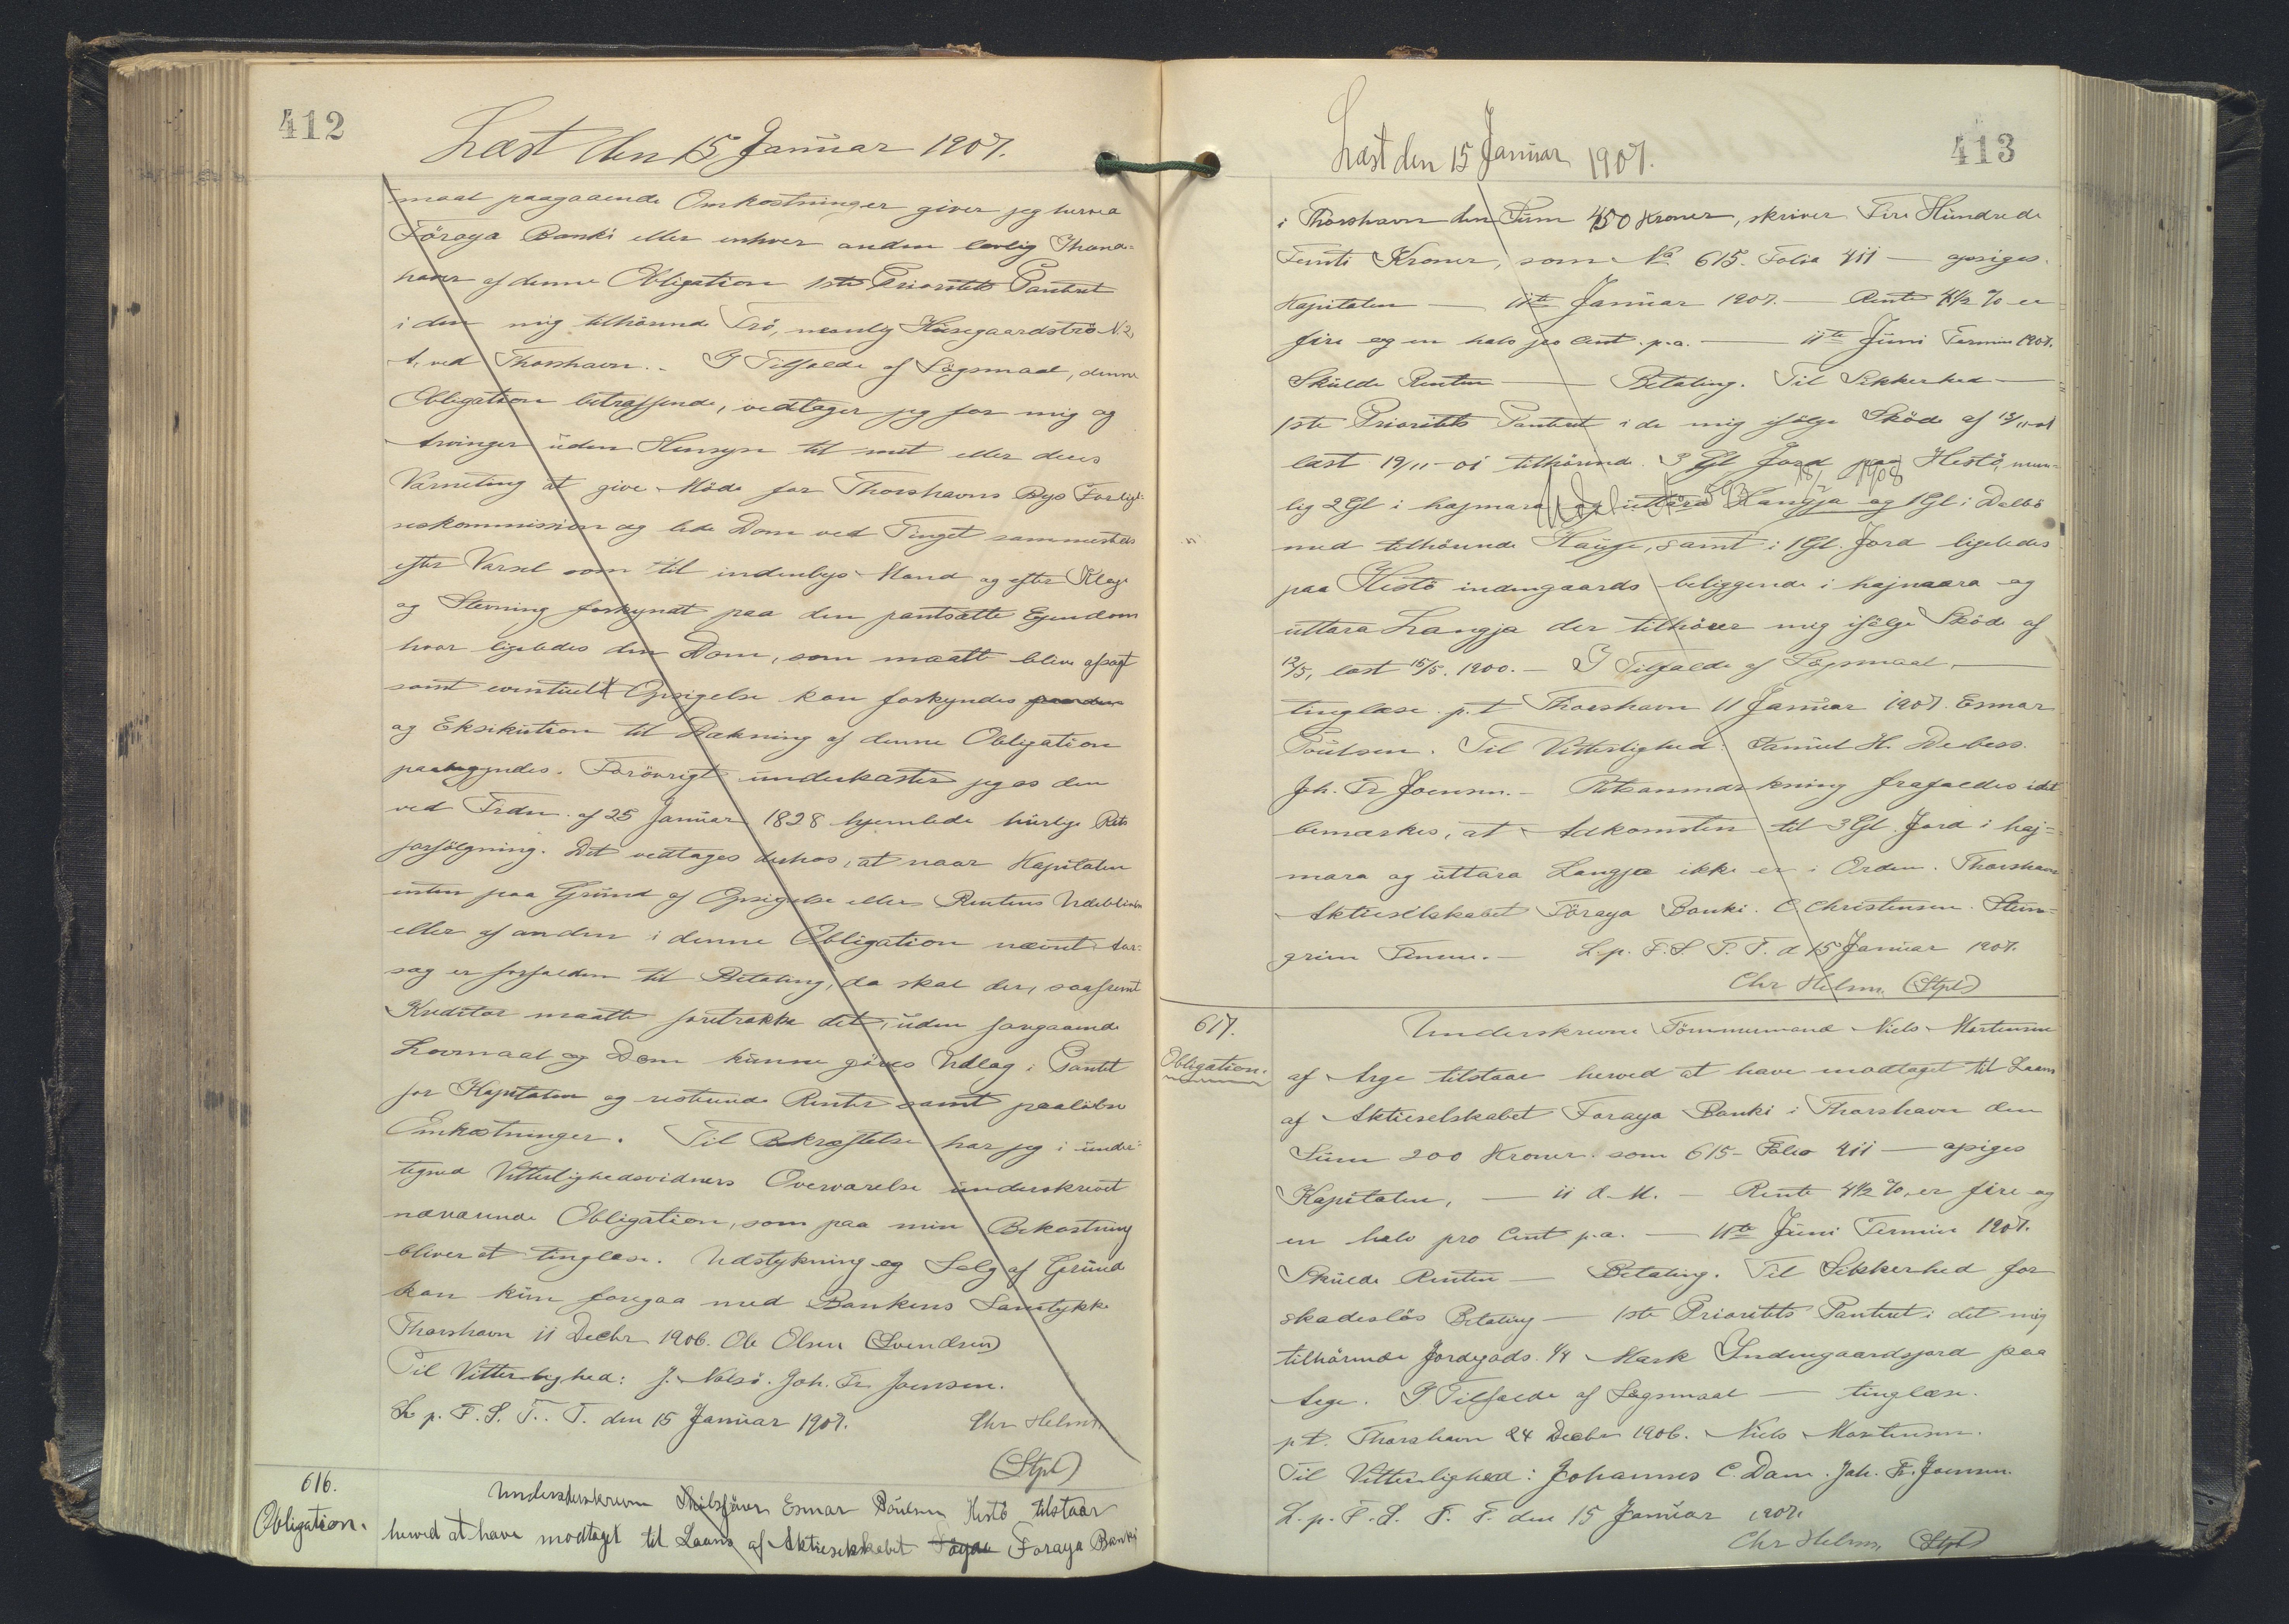 412
Læst den 15 Januar 1907.
maal paagaaende Omkostninger giver jeg herved
Föroya Banki eller enhver anden lovlig Ihænde-
haver af denne Obligation 1ste Prioritets Panteret
i den mig tilhörende Trö, nemlig Húsagaardströ N. 2
A, ved Thorshavn. - I Tilfælde af Sögsmaal, denne
Obligation betræffende, vedtager jeg for mig og
Arvinger uden Hensyn til mit eller deres
Værneting at give Möde for Thorshavns Bys Forligel-
seskommission og lide Dom ved Tinget sammesteds
efter Varsel som til indenbys Mand og efter Klage
og Stevning forkyndt paa den pantsatte Ejendom
hvor ligeledes den Dom, som maatte blive afsagt
samt eventuelt Opsigelse kan forkyndes paa den
og Eksekution til Dækning af denne Obligation
paabegyndes. Forövrigt underkaster jeg os den
ved Frdn. af 25 Januar 1828 hjemlede hurtige Rets
forfölgning. Det vedtages derhos, at naar Kapitalen
enten paa Grund af Opsigelse eller Rentens Udebliven
eller af anden i denne Obligation nævnt Aar-
sag er forfalden til Betaling, da skal der, saafremt
Kreditor maatte foretrække det, uden foregaaende
Lovmaal og Dom kunne göres Udlag i Pantet
for Kapitalen og resterende Renter samt paalöbne
Omkostninger. Til Bekræftelse har jeg i under-
tegned Vitterlighedsvidners Overværelse underskrevet
nærværende Obligation, som paa min Bekostning
bliver at tinglæse. Udstykning og Salg af Grund
kan kun foregaa med Bankens Samtykke
Thorshavn 11 Decbr 1906. Ole Olsen (Svendsen)
Til Vitterlighed: J. Nolsö. Joh. Fr. Joensen.
L. p. F. S. T. T. den 15 Januar 1907. Chr Helms
(Stpl)
616.
Obligation.
Underskrevne Skibsförer Esmar Poulsen Hestö tilstaar
herved at have modtaget til Laans af Aktieselskabet Föroya Banki
413
Læst den 15 Januar 1907.
i Thorshavn den Sum 450 Kroner, skriver Fire Hundrede
Femti Kroner, som No. 615. Folio 411 — opsiges.
Kapitalen — 11te Januar 1907. — Rente 4½ % er
fire og en halv pro Cent. p.a. — 11te Juni Termin 1907.
Skulde Renten — Betaling. Til Sikkerhed —
1ste Prioritets Panteret i de mig ifölge Sköde af
læst 19/11-01 tilhörende 3 Gl Jord paa Hestö, nem-
lig 2 Gl i hajmara og uttara Langja og 1 Gl i Dalbö
1908
med tilhörende Hauge, samt i 1 Gl. Jord ligeledes
paa Hestö indengaards beliggende i hajmara og
uttara Langja der tilhörer mig ifölge Sköde af
12/5, læst 15/5. 1900. - I Tilfælde af Sögsmaal, —
tinglæse. p.t Thorshavn 11 Januar 1907. Esmar
Poulsen. Til Vitterlighed: Samuel H. Debess.
Joh. Fr Joensen. - Retsanmærkning frafaldes idet
bemærkes, at Adkomsten til 3 Gl. Jord i haj-
mara og uttara Langja ikke er i Orden. Thorshavn
Aktieselskabet Föroya Banki. C. Christensen. Stein-
grim - L. p. F. S. T. T. d 15 Januar 1907.
Chr Helms. (Stpl)
617.
Obligation.
Underskrevne Tömmermand Niels Mortensen
af Arge tilstaar herved at have modtaget til Laans
af Aktieselskabet Foroya Banki i Thorshavn den
Sum 200 Kroner. som 615- Folio 411 — opsiges
Kapitalen, — 11 d. M. — Rente 4½ %, er fire og
en halv pro Cent p.a. — 11te Juni Termin 1907.
Skulde Renten — Betaling. Til Sikkerhed for
skadeslös Betaling — 1ste Prioritets Panteret i det mig
tilhörende Jordegods. 1/4 Mark Indengaardsjord paa
Arge. I Tilfælde af Sögsmaal — tinglæse.
pt. Thorshavn 24 Decbr 1906. Niels Mortensen.
Til Vitterlighed: Johannes C. Dam. Joh. Fr. Joensen.
L. p. F. S. T. T. den 15 Januar 1907.
Chr Helms. (Stpl)